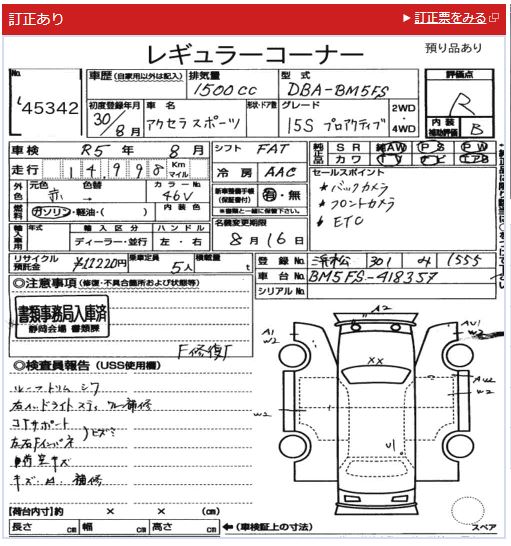 訂正あり
訂正票をみる
レギュラーコーナー
預り品あり
No.
45342
車歴 (自家用以外は記入)
排気量
1500cc
型式
DBA-BM5FS
評価点
R
初度登録年月
30年
8月
車名
アクセラスポーツ
形状・ドア数
グレード
15S プロアクティブ
2WD
・
4WD
内装
補助評価
B
車検 R5年 8月
シフト FAT
純正品 SR 純AW PS PW
カワ TV ナビ エアB
走行 14,998 Km マイル
冷房 AAC
セールスポイント
* バックカメラ
* フロントカメラ
* ETC
外色
元色 赤
色替 →
カラーNo. 46V
燃料 ガソリン・軽油・( )
内装色
新車整備手帳
(保証書付)
有・無
※書類と一緒に保管下さい。
輸入車用 年式
輸入区分
ディーラー・並行
ハンドル
左・右
名義変更期限
8月16日
リサイクル預託金 ¥11220円
乗車定員 5人
積載量 t
登録No. 浜松 301 み 1555
車台No. BM5FS-418357
シリアルNo.
◎注意事項 (修復・不具合箇所および状態等)
書類事務局入庫済
静岡会場 書類課
F修復F
◎検査員報告 (USS使用欄)
ルーフトリム シワ
コアサポート
左右Fインパネ
荷室キズ
キズ 補修
A2
A1
W2
XX
W2
W2
[荷台内寸] 約 × × (cm)
長さ cm 幅 cm 高さ cm
← (車検証上の寸法)
スペア